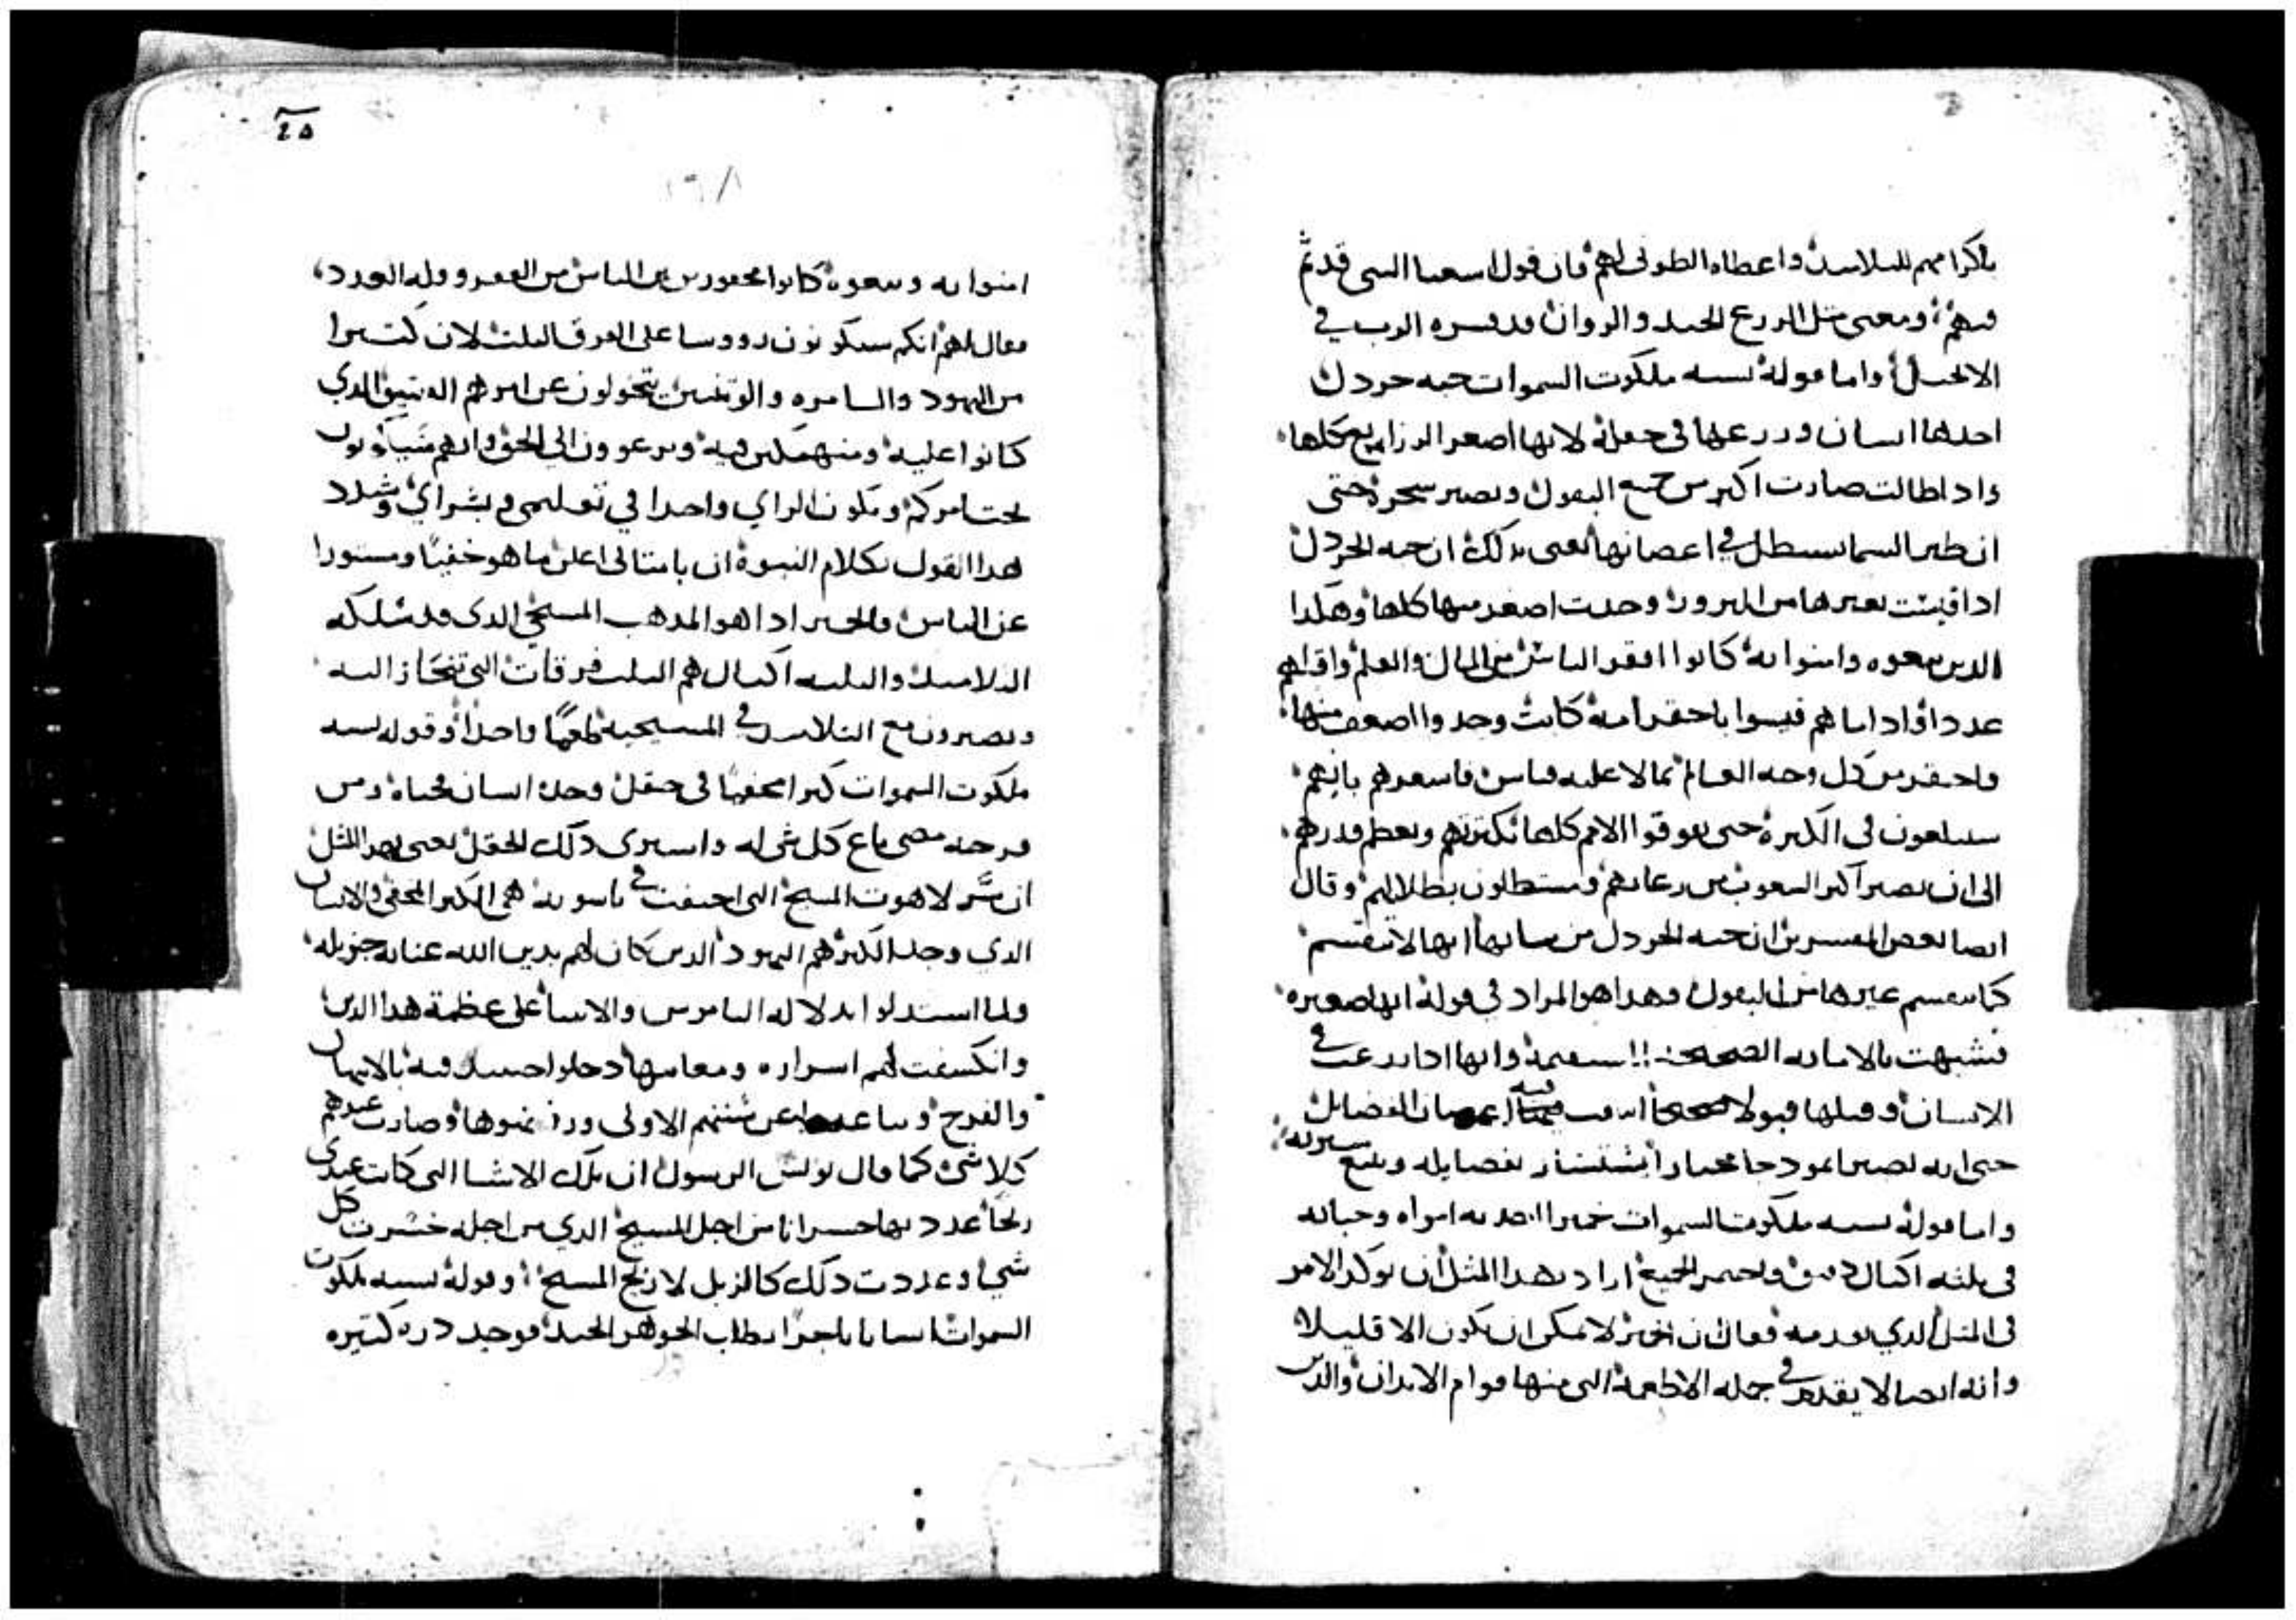 باكرامهم للتلاميذ واعطاه الطوبى لهم فان قول اسعيا النبي قد تم
فيهم ومعنى مثل الزرع الجيد والزوان قد فسره الرب في
الانجيل واما قوله تشبه ملكوت السموات حبه خردل
اخذها انسان وزرعها في حقله لانها اصغر الزراريع كلها
واذا طالت صارت اكبر من جميع البقول وتصير شجرة حتى
ان طير السما يستظل في اغصانها يعني بذلك ان حبه الخردل
اذا قيست بغيرها من البزور وجدت اصغر منها كلها وهكذا
الذين تبعوه وامنوا به كانوا افقر الناس من المال والعلم واقلهم
عددا واذا ما هم قيسوا باحقر امة كانت وجدوا اضعف منها
واحقر من كل وجه العالم مما لا عليه قياس فاشعرهم بانهم
سيبلغون في الكثرة حتى يفوقوا الامم كلها بكثرتهم ويعظم قدرهم
الى ان يصير اكثر الشعوب من رعاياهم ومستظلون بظلالهم وقال
ايضا بعض المفسرين ان حبه الخردل من شانها انها لا تنقسم
كما ينقسم غيرها من البقول وهذا هو المراد في قوله انها صغيره
فشبهت بالامانه الصحيحة المستقيمة وانها اذا زرعت في
الانسان وقبلها قبولا صحيحا انبتت فيه اغصان الفضايل
حتى انه يصير نمودجا مختارا يستسار بفضايله ويتبع سيرته
واما قوله تشبه ملكوت السموات خميرا اخذته امراه وخباته
في ثلثه اكيال دقيق فاختمر الجميع اراد بهذا المثل ان يوكد الامر
في المثل الذي تقدمه فقال ان الخمير لا يمكن ان يكون الا قليلا
وانه ايضا لا يقدم في جمله الاطعمة التي منها قوام الابدان والذين
٢٥
امنوا به وتبعوه كانوا محقورين بين الناس من الفقر وقله العدد
فقال لهم انكم ستكونون رووسا على الفرق الثلث لان كثيرا
من اليهود والسامره والوثنيين يتحولون عن امرهم العتيق الذي
كانوا عليه ومنهمكين فيه ويرعوون الى الحق وانهم سياتون
تحت امركم ويكون الراي واحدا في تعليمي وبشراي وشدد
هذا القول بكلام النبوة ان بامثالي اعلن ما هو خفيا ومستورا
عن الناس والخمير اذا هو المذهب المسيحي الذي قد سلكه
التلاميذ والثلثه اكيال هم الثلث فرقات التي تنحاز اليه
ويصيرون مع التلاميذ في المسيحية طعما واحدا وقوله تشبه
ملكوت السموات كنزا مخفيا في حقل وجده انسان فخباه ومن
فرحته مضى باع كل شي له واشترى ذلك الحقل يعني بهذا المثل
ان سر لاهوت المسيح التي اختفت في ناسوته هي الكنز المخفي والانسان
الذي وجد الكنز هم اليهود الذين كان لهم بدين الله عنايه جزيله
ولما استدلوا بدلاله الناموس والانبيا على عظمة هذا الدين
وانكشفت لهم اسراره ومعانيها دخلوا حينيذ فيه بالايمان
والفرح وتباعدوا عن سنتهم الاولى ورفضوها وصارت عندهم
كلا شي كما قال بولس الرسول ان تلك الاشيا التي كانت عندي
ربحا عددتها خسرانا من اجل المسيح الذي من اجله خسرت كل
شي وعددت ذلك كالزبل لاربح المسيح وقوله تشبه ملكوت
السموات انسانا تاجرا يطلب الجوهر الجيد فوجد دره كثيره